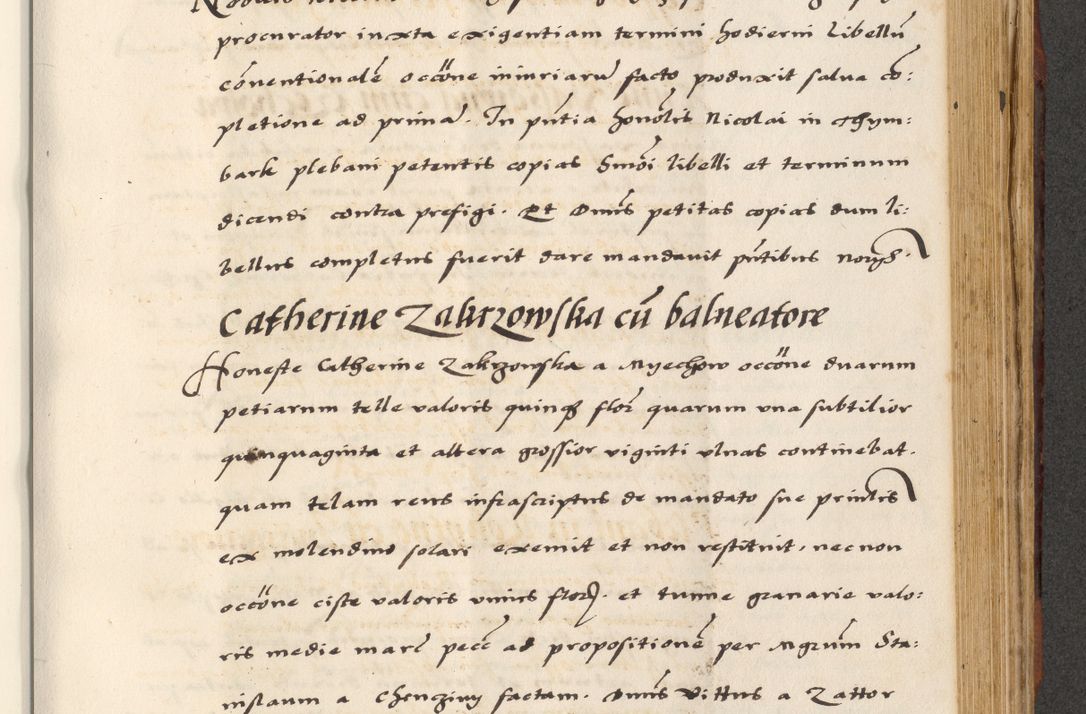 procurator iuxta exigentiam termini hodierni libellū
cōventionalē occōne iniuriarū facto produxit salva cō:
pletione ad primā. In pn̄tia honōlis Nicolai in Thym:
bark plebani petentis copias Smōi libelli et terminum
dicendi contra prefigi. Et Dnūs petitas copias dum li:
bellus completus fuerit dare mandavit pn̄tibus
Catherine Zakrzowska cū balneatore
Honeste Catherine Zakrzowska a Myechow occōne duarum
petiarum telle valoris quinq flor quarum una subtilior
quinquaginta et altera grossior viginti ulnas continebat.
quam telam reus infrascriptus de mandato sue prin̄lis
ex molendino solari exemit et non restituit, nec non
occōne ciste valoris unius flor. et tunne granarie valo:
ris medie marc̄ pecc̄ ad propositionē per Mgrūm Sta:
nislaum a Chenziny factam. Dnūs Vittus a Zattor